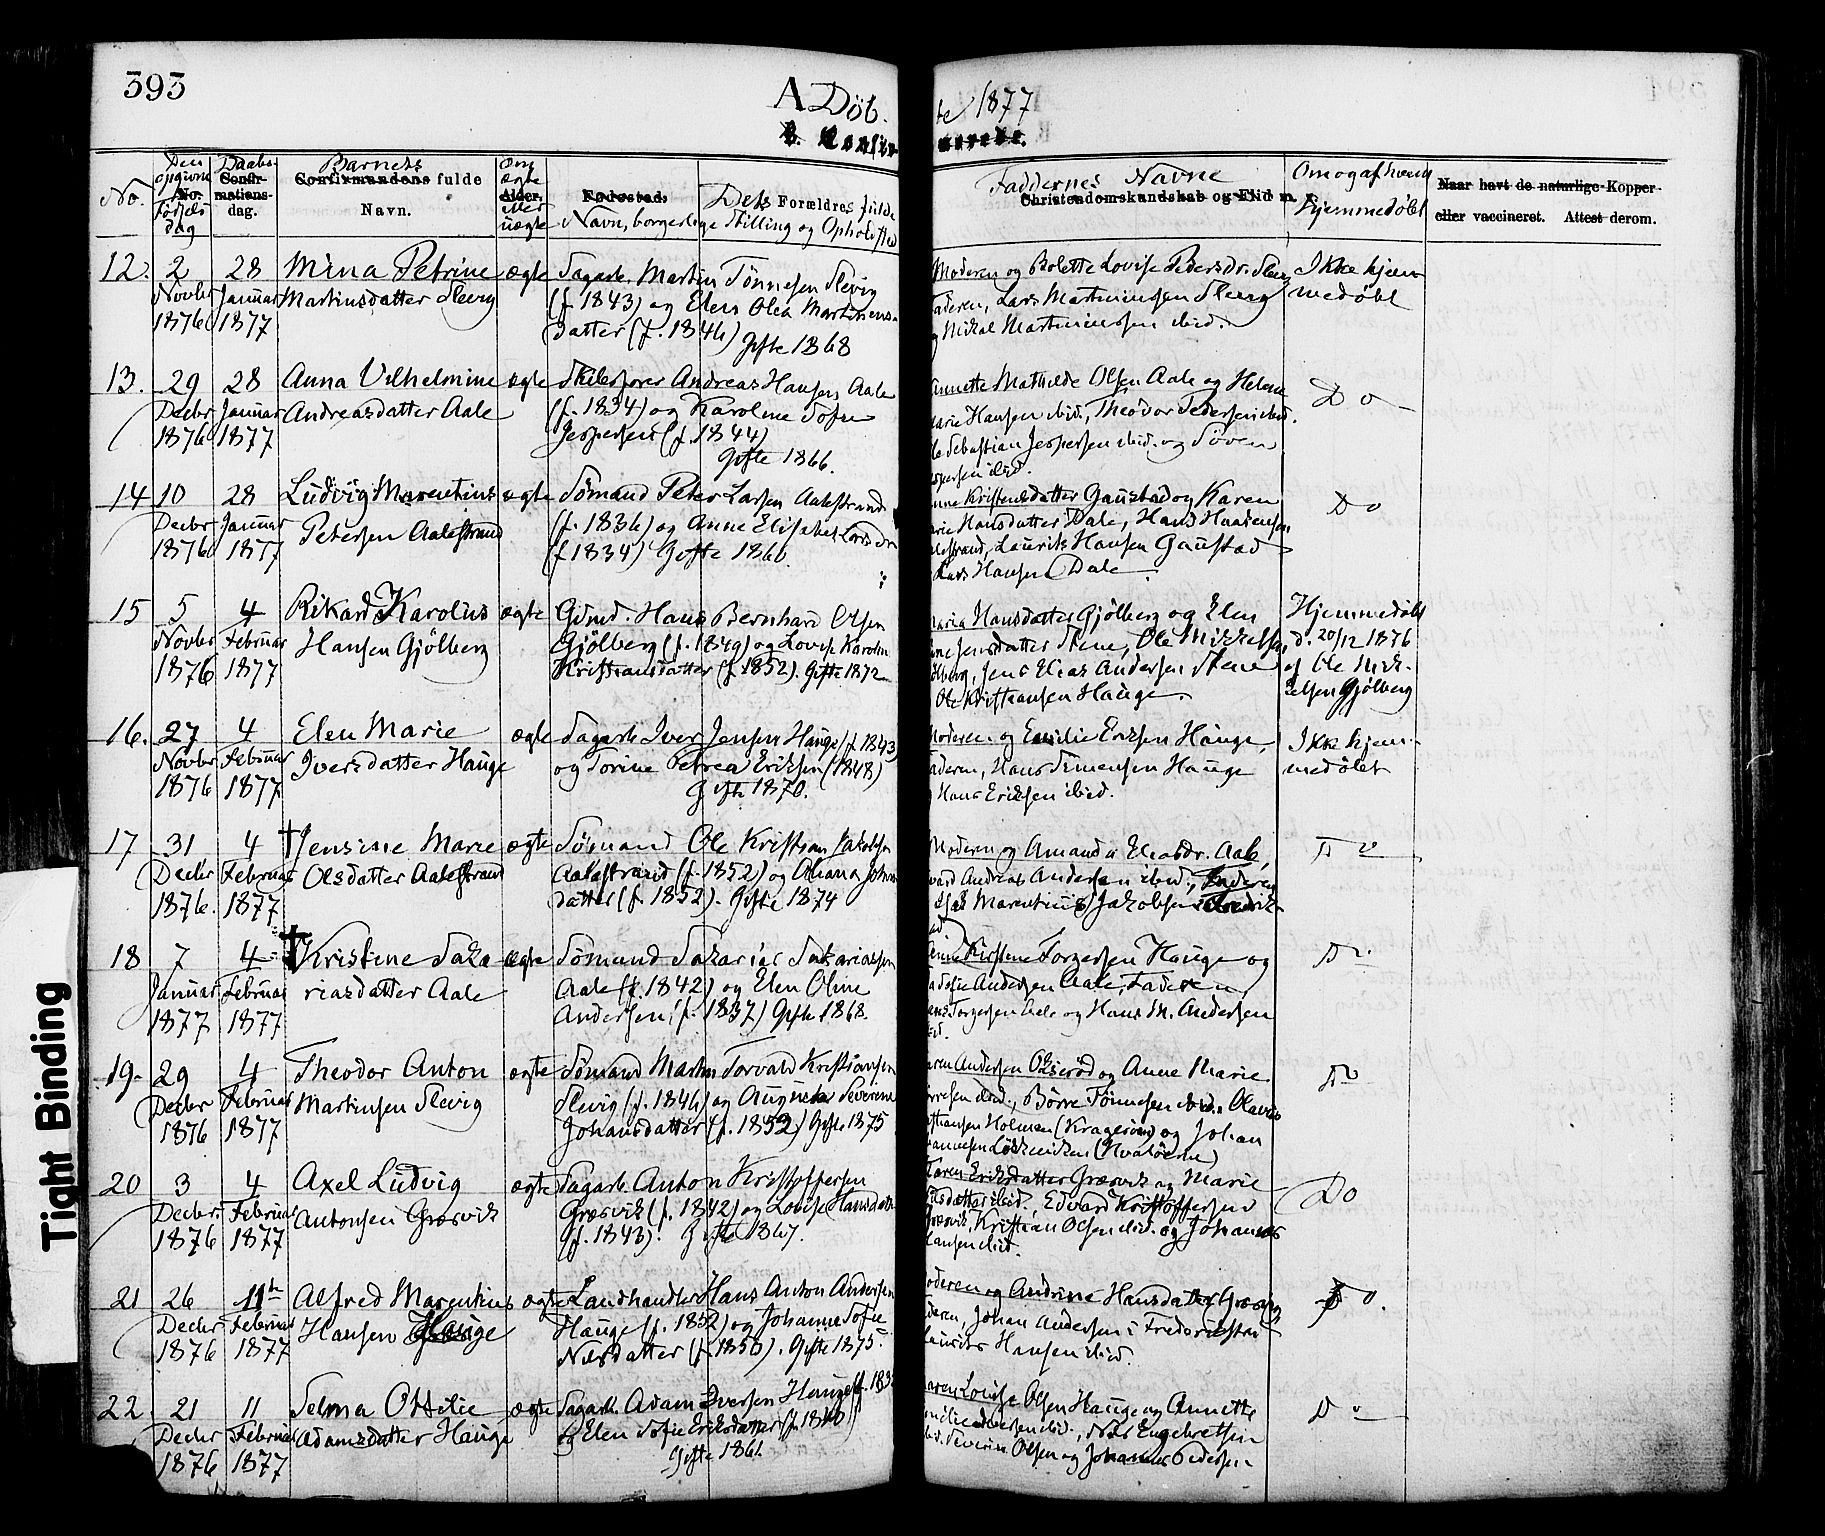 393
A Döb.
te 1877
B. Konfir
merede.
No.
Den opgivne Fødselsdag
No.
Daabs
Confirmationsdag.
Barnets
Confirmandens fulde
Navn.
om ægte eller uægte
Alder.
Fødested.
Dets Forældres fulde
Navn, borgerlige Stilling og Opholdsted
Faddernes Navne
Christendomskundskab og Flid m.
Om og af hvem
hjemmedöbt
Naar havt de naturlige Kopper
eller vaccineret. Attest derom.
12. 2 28 Mina Petrine ægte Sagarb. Martin Tönnesen Slevig
Novbr Januar Martinsdatter Slevig (f. 1843) og Elen Olea Martinius-
1876 1877 datter (f. 1846) Gifte 1868
Moderen og Bolette Lovise Pedersdr. Slevig Ikke hjem
Faderen, Lars Martiniussen Slevig medöbt
og Mikal Martiniussen ibid.
13. 29 28 Anna Vilhelmine ægte Skibsförer Andreas Hansen Aale
Decbr Januar Andreasdatter Aale (f. 1834) og Karoline Sofie
1876 1877 Jespersen (f. 1844)
Gifte 1866.
Annette Mathilde Olsen Aale og Helene Do
Marie Hansen ibid., Theodor Pedersen ibid.
Sebastian Jespersen ibid. og Sören
Jespersen ibid.
14 10 28 Ludvig Marentius ægte Sömand Peter Larsen Aalestrand
Decbr Januar Petersen Aalestrand (f. 1836) og Anne Elisabet Larsdr
1876 1877 (f 1834) Gifte 1860.
Anne Kristensdatter Gaustad og Karen Do
Marie Hansdatter Dale, Hans
Aalestrand, Laurits Hansen Gaustad
Lars Hansen Dale.
15 5 4 Rikard Karolius ægte Grd. Hans Bernhard Olsen
Novbr Februar Hansen Gjölberg Gjölberg (f. 1849) og Lovise Karolin
1876 1877 Kristiansdatter (f. 1852). Gifte 1872
Maria Hansdatter Gjölberg og Elen Hjemmedöbt
Jensdatter Stene, Ole Mikkelsen d. 20/12 1876
Gjölberg, Jens Elias Andersen Stene af Ole Mik-
Ole Kristiansen Hauge. kelsen Gjölberg
16. 27 4 Elen Marie ægte Sagarb. Iver Jensen Hauge (f. 1843)
Novbr Februar Iversdatter Hauge og Torine Petrea Eriksen (1848)
1876 1877 Gifte 1870.
Moderen og Emilie Eriksen Hauge, Ikke hjem-
Faderen, Hans Simensen Hauge medöbt
Hans Eriksen ibid.
17 31 4 † Jensine Marie ægte Sömand Ole Kristian Jakobsen
Decbr Februar Olsdatter Aalestrand Aalestrand (f. 1852) og Oliana Johan
1876. 1877 datter (f. 1852). Gifte 1874
Moderen og Amanda Eliasdr. Aale, Do
Andreas Andersen ibid., Faderen
Marentius Jakobsen Fredrik-
stad
18 7 4 † Kristine Saka ægte Sömand Sakarias Sakariassen
Januar Februar riasdatter Aale Aale (f. 1842) og Elen Oline
1877 1877 Andersen (f. 1837) Gifte 1868.
Kirstine Torgersen Hauge og Do
Sofie Andersen Aale, Faderen
Torgersen Aale og Hans M. Andersen
ibid.
19. 29 4 Theodor Anton ægte Sömand Martin Torvald Kristiansen
Decbr Februar Martinsen Slevig Slevig (f. 1846) og Augusta Severine
1876 1877 Johansdatter (f. 1852) Gifte 1875
Karen Andersen og Anne Marie Do
ibid., Börre Tönnesen ibid. Olavus
Kristiansen Holmen (Kragerøen) og Johan
Johannesen (Hvaløerne)
20 3 4 Axel Ludvig ægte Sagarb. Anton Kristoffersen
Decbr. Februar Antonsen Græsvik Græsvik (f. 1842) og Lovise Hansdatter
1876 1877 (f. 1843). Gifte 1867.
Karen Eriksdatter Græsvik og Marie Do
Nilsdatter ibid., Edvard Kristoffersen
Græsvik, Kristian Olsen ibid. og Johannes
Hansen ibid.
21 26 11te Alfred Marentius ægte Landhandler Hans Anton Andersen
Decbr Februar Hansen Hauge Hauge (f. 1852) og Johanne Sofie
1876 1877 Nilsdatter (f. 1853). Gifte 1875.
Moderen og Andrine Hansdatter Græsvig, Do.
Faderen, Johan Andersen i Frederikstad
Laurits Hansen ibid.
22. 21 11 Selma Ottilie ægte Sagarb. Adam Iversen Hauge (f. 183
Decbr Februar Adamsdatter Hauge og Elen Sofie Eriksdatter (f. 1840)
1876 1877 Gifte 1861.
Karen Lovise Olsen Hauge og Annette Do
Emilie Iversen ibid., Nils Engebretsen
ibid. Severin Olsen og Johannes Pedersen
Tight Binding